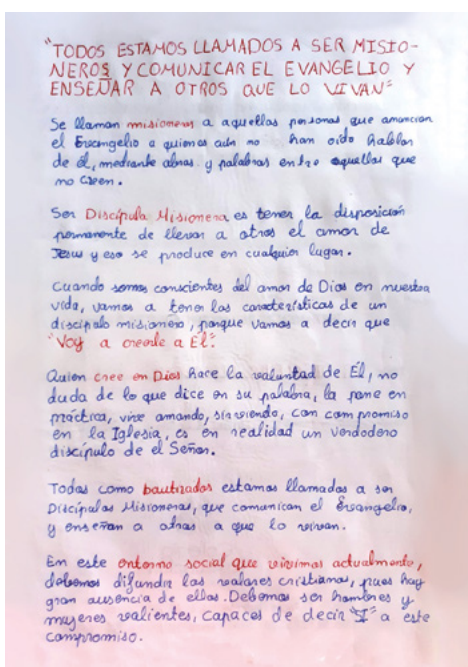 "TODOS ESTAMOS LLAMADOS A SER MISIO-
NEROS Y COMUNICAR EL EVANGELIO Y
ENSEÑAR A OTROS QUE LO VIVAN"
Se llaman misioneros a aquellas personas que anuncian
el Evangelio a quienes aún no han oído hablar
de él, mediante obras y palabras entre aquellos que
no creen.
Ser Discípulo Misionero es tener la disposición
permanente de llevar a otros el amor de
Jesus y eso se produce en cualquier lugar.
Cuando somos conscientes del amor de Dios en nuestra
vida, vamos a tener las características de un
discípulo misionero, porque vamos a decir que
"Voy a creerle a Él".
Quien cree en Dios hace la voluntad de Él, no
duda de lo que dice en su palabra, la pone en
práctica, vive amando, sirviendo, con compromiso
en la Iglesia, es en realidad un verdadero
discípulo de el Señor.
Todos como bautizados estamos llamados a ser
Discípulos Misioneros, que comunican el Evangelio,
y enseñan a otros a que lo vivan.
En este entorno social que vivimos actualmente,
debemos difundir los valores cristianos, pues hay
gran ausencia de ellos. Debemos ser hombres y
mujeres valientes, capaces de decir "SI" a este
compromiso.